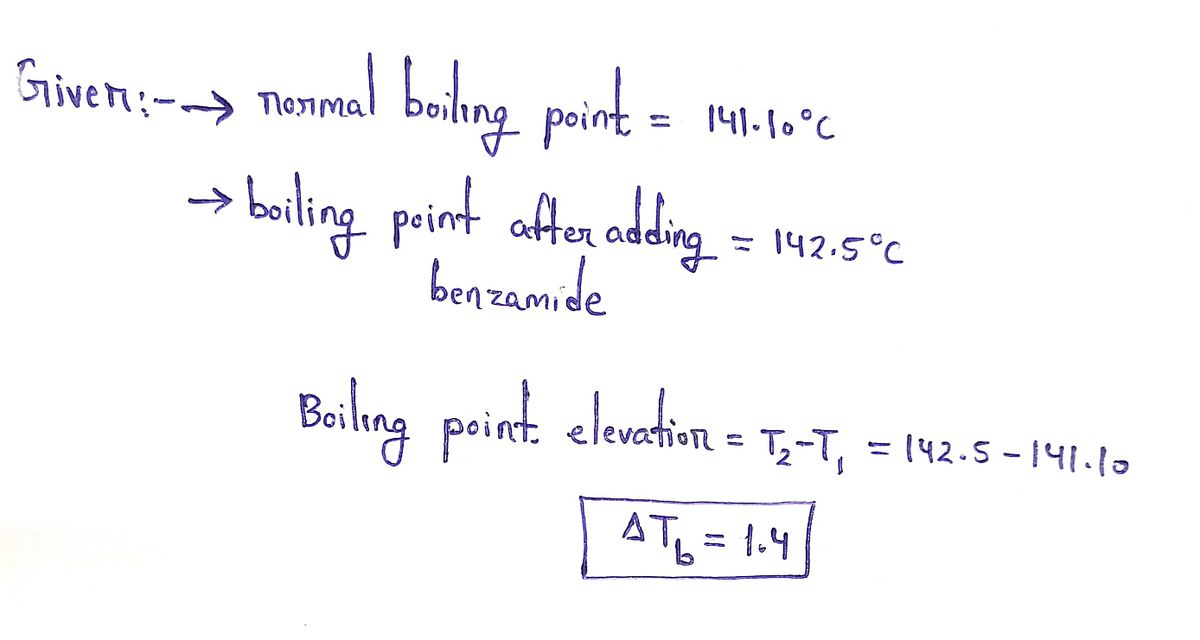 Given:-→ normal boiling point = 141.10°C
→ boiling point after adding = 142.5°C
benzamide
Boiling point elevation = T₂-T₁ = 142.5 - 141.10
ΔT_b = 1.4